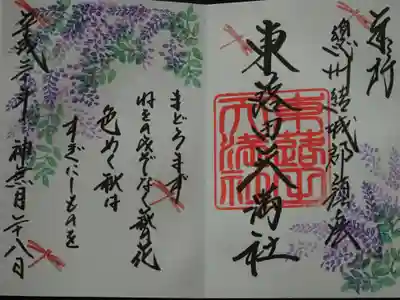 總州結城郡鎮座
東蕗田天満社
東蕗田天満社
まどろまず
ねをのみぞなく萩の花
色めく秋は
すぎにしものを
平成三十年 神無月廿八日